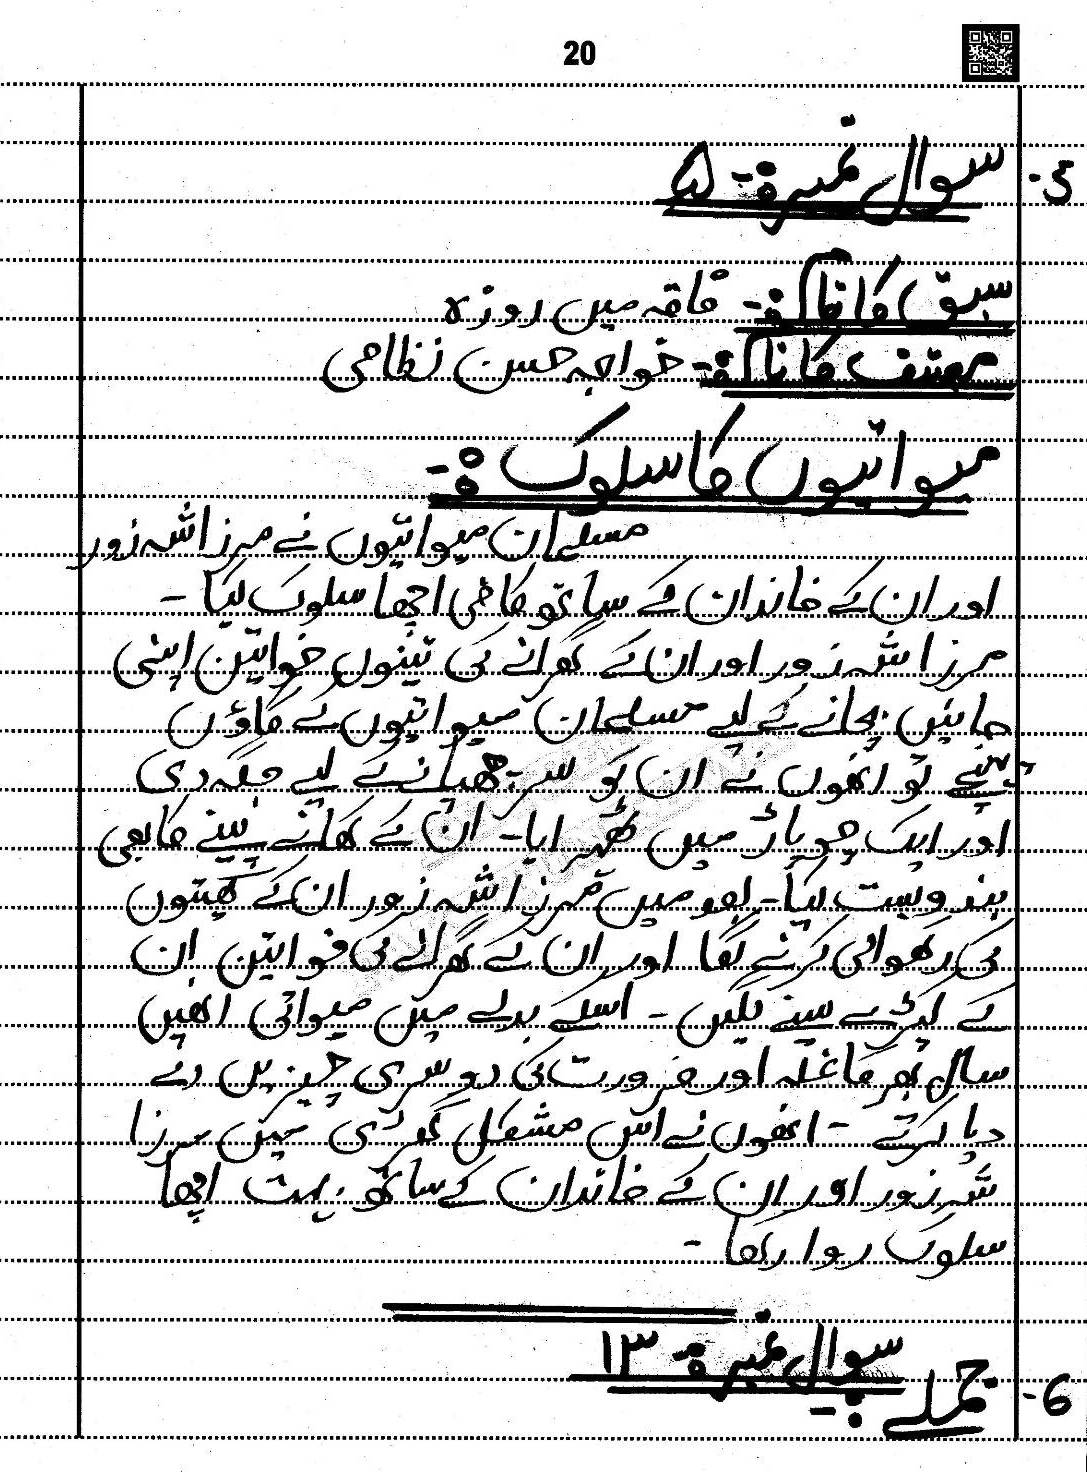 20
5- سوال نمبر:- ۵
سبق کا نام:- فاقہ میں روزہ
مصنف کا نام:- خواجہ حسن نظامی
میواتیوں کا سلوک:-
مسلمان میواتیوں نے مرزا شہ زور
اور ان کے خاندان کے ساتھ کافی اچھا سلوک کیا -
مرزا شہ زور اور ان کے گھرانے کی تینوں خواتین اپنی
جانیں بچانے کے لیے مسلمان میواتیوں کے گاؤں
پہنچے تو انھوں نے ان کو سر چھپانے کے لیے جگہ دی
اور ایک چوپاڑ میں ٹھہرایا - ان کے کھانے پینے کا بھی
بندوبست کیا - بعد میں مرزا شہ زور ان کے کھیتوں
کی رکھوالی کرنے لگا اور ان کے گھرانے کی خواتین ان
کے کپڑے سینے لگیں - اسکے بدلے میں میواتی انھیں
سال بھر کا غلہ اور ضرورت کی دوسری چیزیں دے
دیا کرتے - انھوں نے اس مشکل گھڑی میں مرزا
شہ زور اور ان کے خاندان کے ساتھ بہت اچھا
سلوک روا رکھا -
سوال نمبر:- ۱۳
6- جملے:-